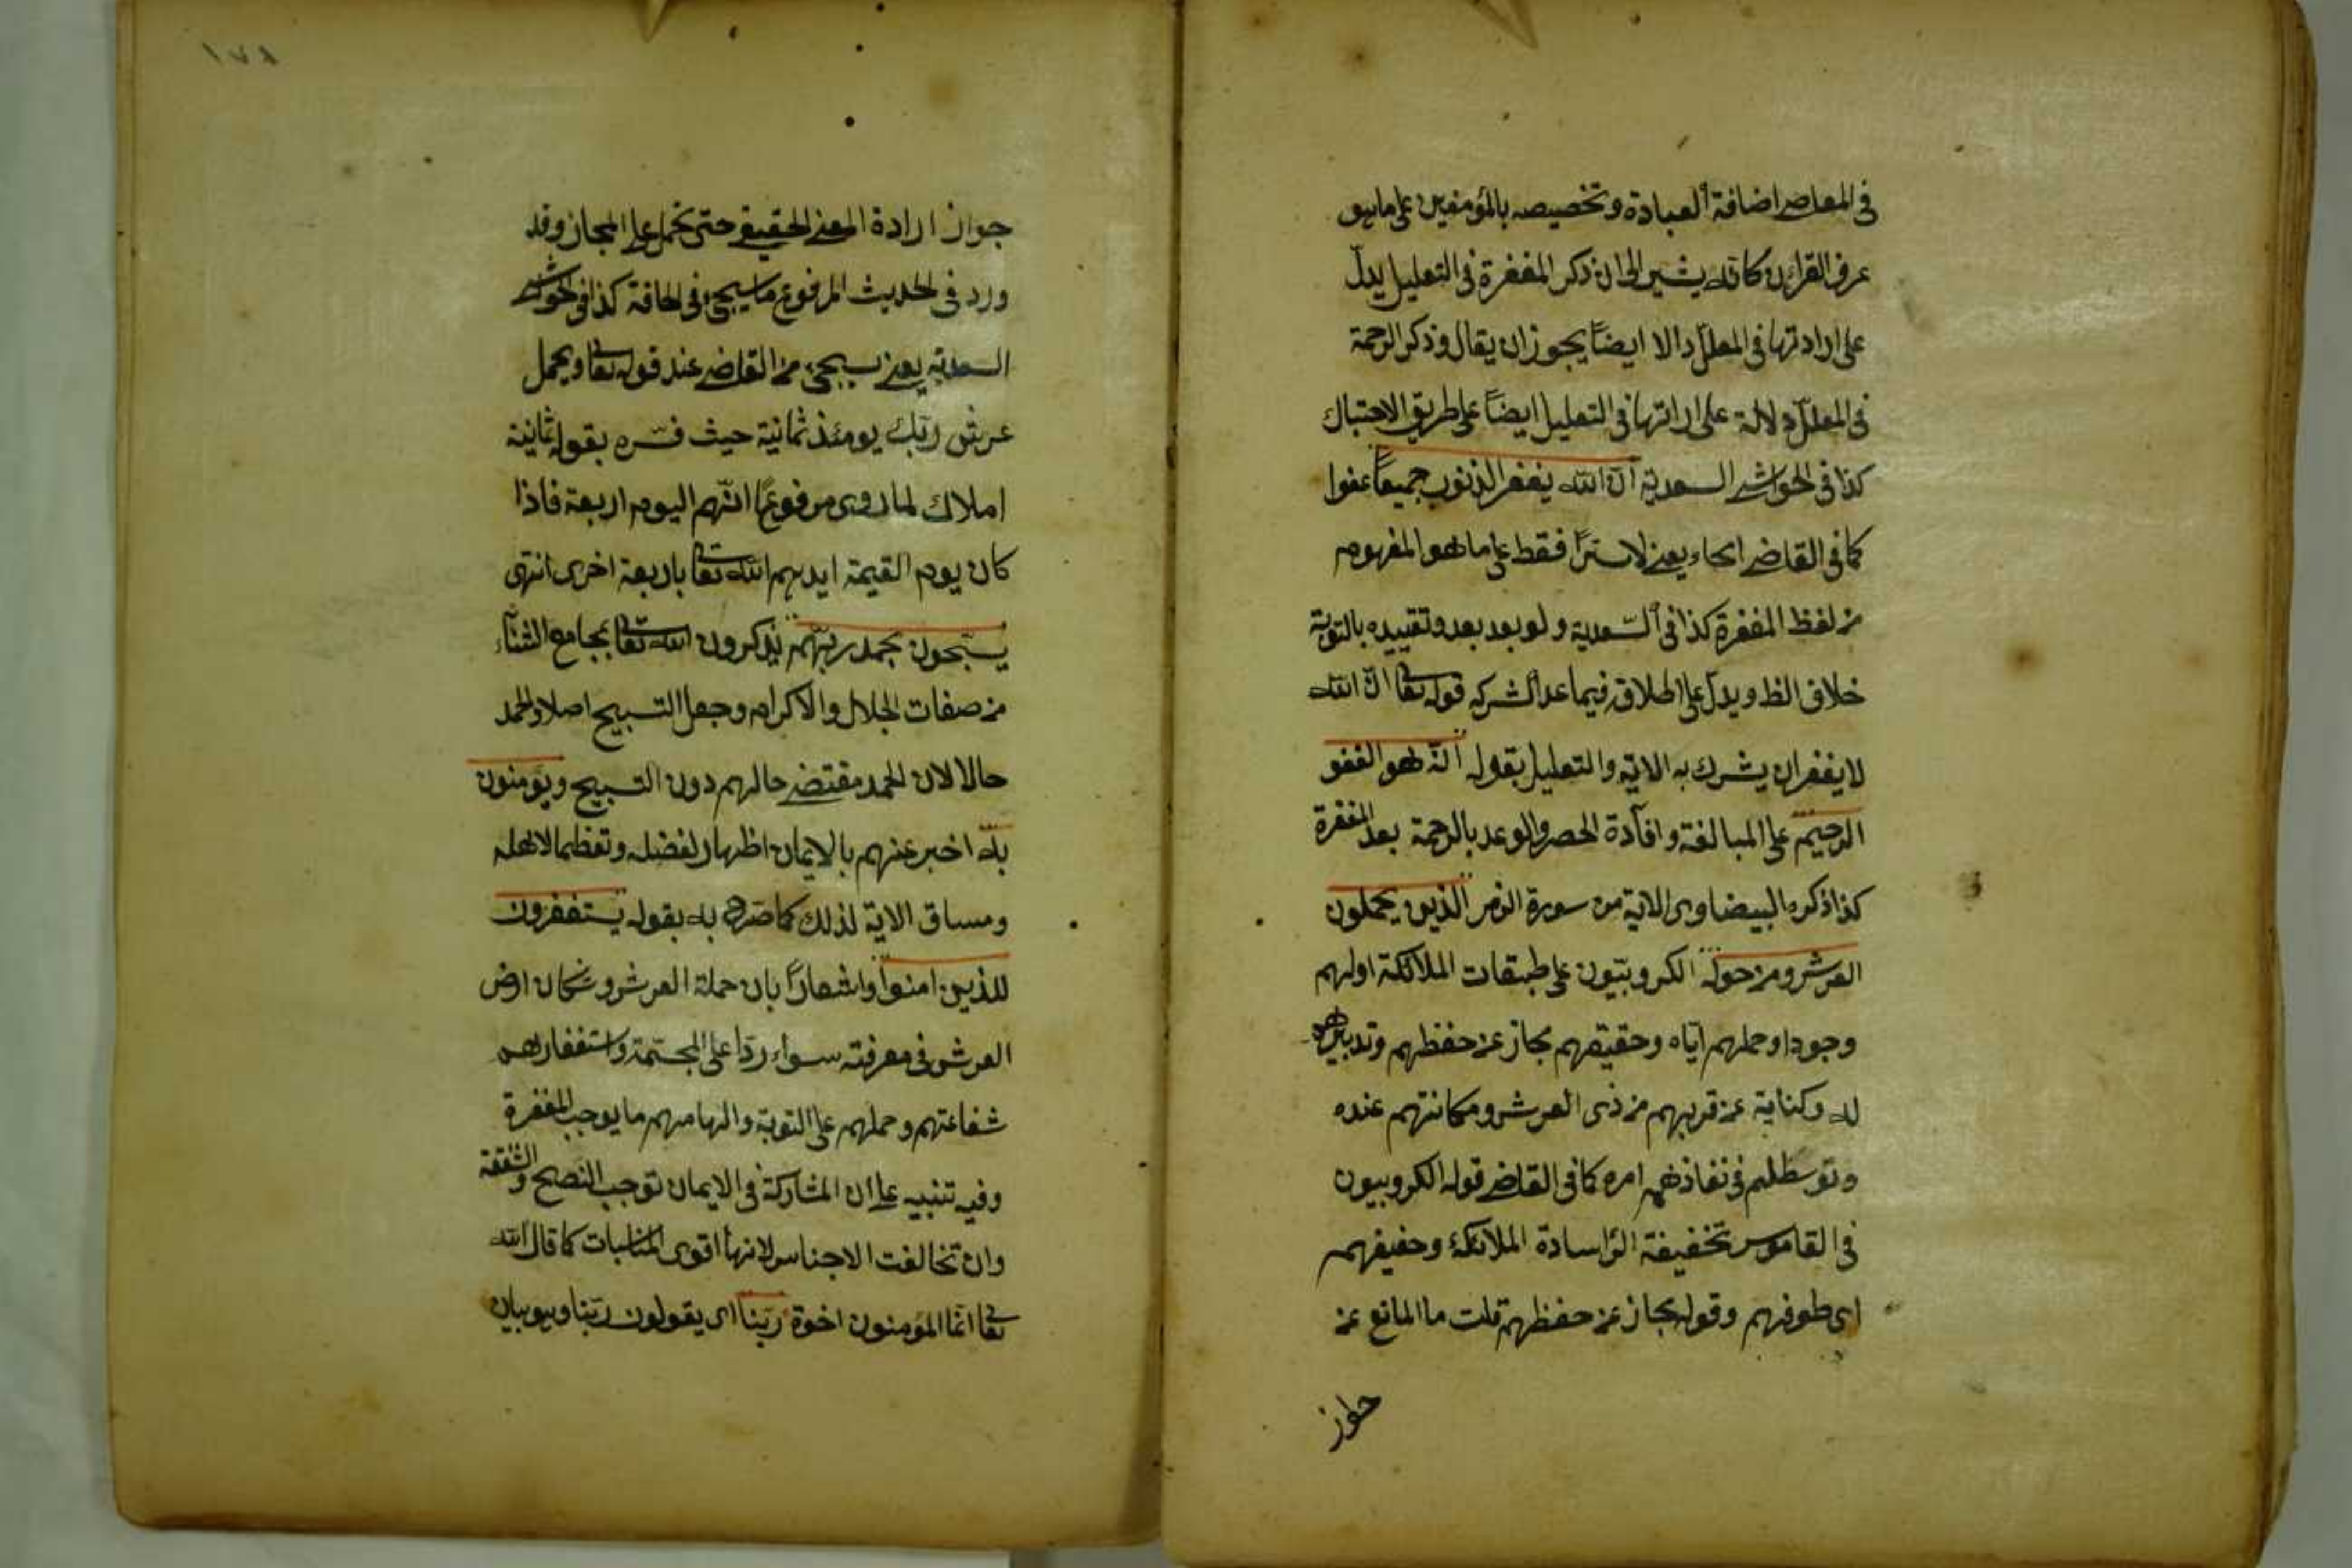 فى المعاصى اضافة العبادة وتخصيصه بالمؤمنين على ما هو
عرف القرآن كانه يشير الى ان ذكر المغفرة فى التعليل يدلّ
على ارادتها فى المعلل والا ايضاً يجوز ان يقال وذكر الرحمة
فى المعلّل دلالة على ارادتها فى التعليل ايضاً على طريق الاحتباك
كذا فى الحواشى السعدية ان الله يغفر الذنوب جميعاً عفوا
كما فى القاضى اىحاء يعنى لا ستراً فقط على ما هو المفهوم
من لفظ المغفرة كذا فى السّعدية ولو بعد بعد وتقييده بالتوبة
خلاف الظ ويدل على اطلاقه فيما عدا الشرك قوله تعا انّ الله
لا يغفر ان يشرك به الاية والتعليل بقوله انّه هو الغفو
الرحيم على المبالغة وافادة الحصر والوعد بالرحمة بعد المغفرة
كذا ذكره البيضاوى الاية من سورة الزمر الذين يحملون
العرش ومن حوله الكروبيّون على طبقات الملائكة اولهم
وجودا وحملهم ايّاه وحفيفهم مجاز عن حفظهم وتدبيرهم
له وكناية عن قربهم من ذى العرش ومكانتهم عنده
وتوسطهم فى نفاذ امره كما فى القاضى قوله الكروبيون
فى القاموس تخفيفة الرّا سادة الملائكة وحفيفهم
اى طوفهم وقوله مجاز عن حفظهم قلت ما المانع عن
جواز
١٧٨
جواز ارادة المعنى الحقيقى حتى يحمل على المجاز وقد
ورد فى الحديث المرفوع ما سيجئ فى الحاقة كذا فى الحواشى
السعدية يعنى سيجئ من القاضى عند قوله تعا ويحمل
عرش ربّك يومئذ ثمانية حيث فسّره بقوله ثمانية
املاك لما روى مرفوعاً انّهم اليوم اربعة فاذا
كان يوم القيمة ايدهم الله تعا باربعة اخرى انتهى
يسبّحون بحمد ربّهم يذكرون الله تعا بمجامع الثناء
من صفات الجلال والاكرام وجعل التسبيح اصلا والحمد
حالا لان الحمد مقتضى حالهم دون التسبيح ويؤمنون
به اخبر عنهم بالايمان اظهار الفضله وتعظيما لاهله
ومساق الاية لذلك كما صرح به بقوله يستغفرون
للذين امنوا واشعاراً بان حملة العرش وسكان ارض
العرش فى معرفته سواء ردّا على المجسّمة واستغفارهم
شفاعتهم وحملهم على التوبة والهامهم ما يوجب المغفرة
وفيه تنبيه على ان المشاركة فى الايمان توجب النصح والشفقة
وان تخالفت الاجناس لانها اقوى المناسبات كما قال الله
تعا انّما المؤمنون اخوة ربّنا اى يقولون ربّنا وهو بيان